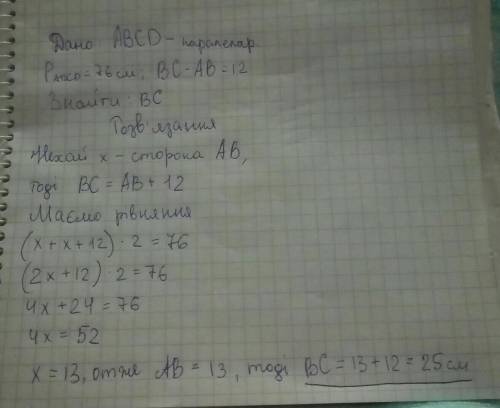 Дано ABCD - паралелар.
Pавсо = 76 см; BC - AB = 12
Знайти: BC
Розв'язання
Нехай x - сторона AB,
тоді BC = AB + 12
Маємо рівняння
(x + x + 12) · 2 = 76
(2x + 12) · 2 = 76
4x + 24 = 76
4x = 52
x = 13, отже AB = 13, тоді BC = 13 + 12 = 25 см